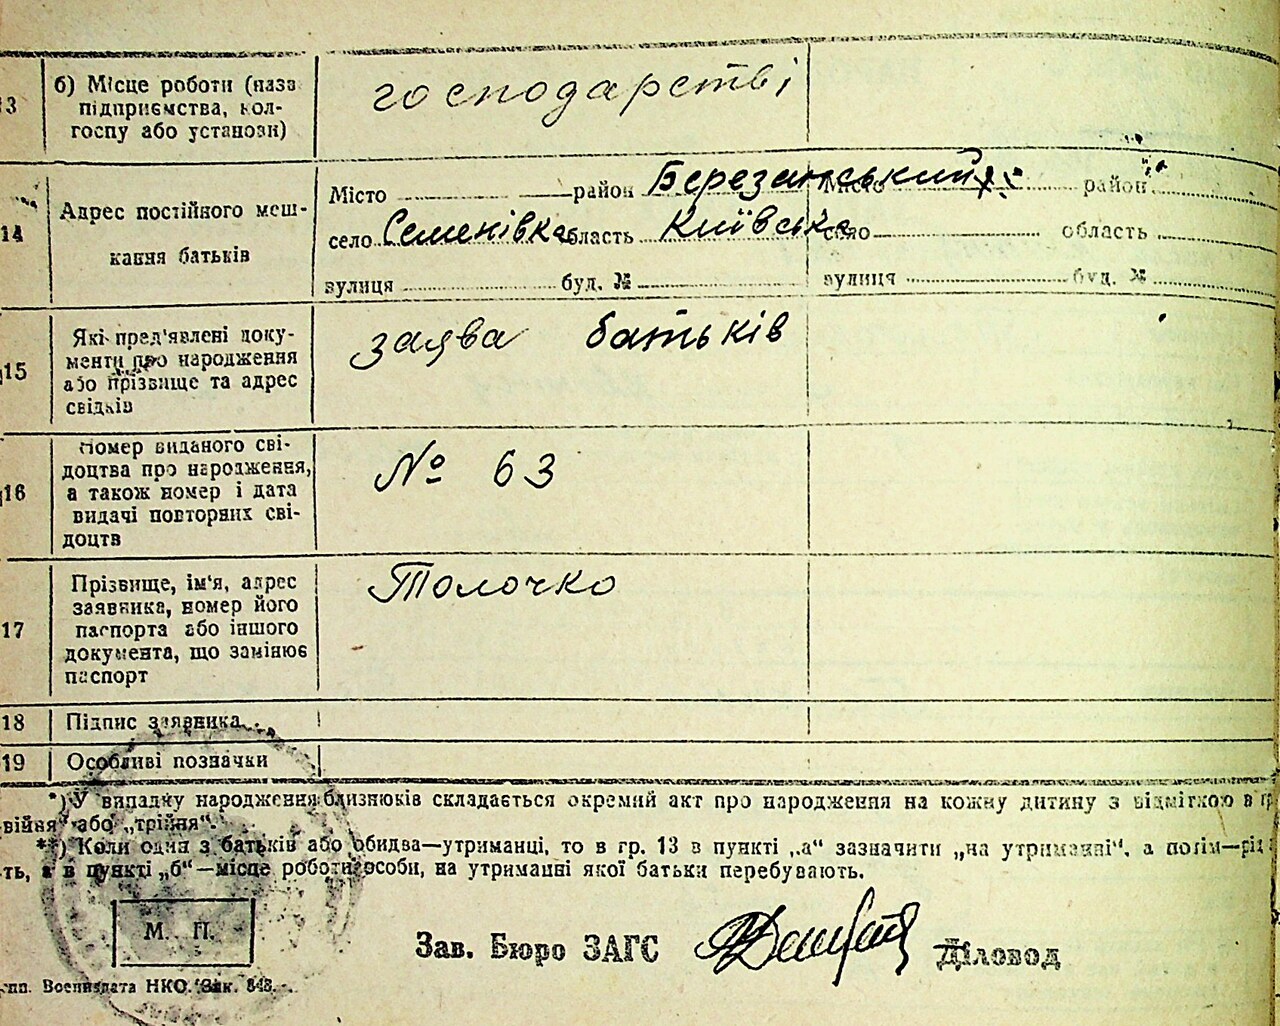 13 б) Місце роботи (назва
підприємства, кол-
госпу або установи)
господарстві
14 Адрес постійного меш-
кання батьків
Місто район Березанський Місто район
село Семенівка область Київська село область
вулиця буд. № вулиця буд. №
15 Які пред'явлені доку-
менти про народження
або прізвище та адрес
свідків
заява батьків
16 Номер виданого сві-
доцтва про народження,
а також номер і дата
видачі повторних сві-
доцтв
№ 63
17 Прізвище, ім'я, адрес
заявника, номер його
паспорта або іншого
документа, що замінює
паспорт
Толочко
18 Підпис заявника
19 Особливі позначки
*) У випадку народження близнюків складається окремий акт про народження на кожну дитину з відміткою в гр
війня" або „трійня".
**) Коли один з батьків або обидва—утриманці, то в гр. 13 в пункті „а" зазначити „на утриманні", а потім—рід
ть, а в пункті „б"—місце роботи особи, на утриманні якої батьки перебувають.
М. П.
Зав. Бюро ЗАГС Діловод
Воениздата НКО. Зак. 848.